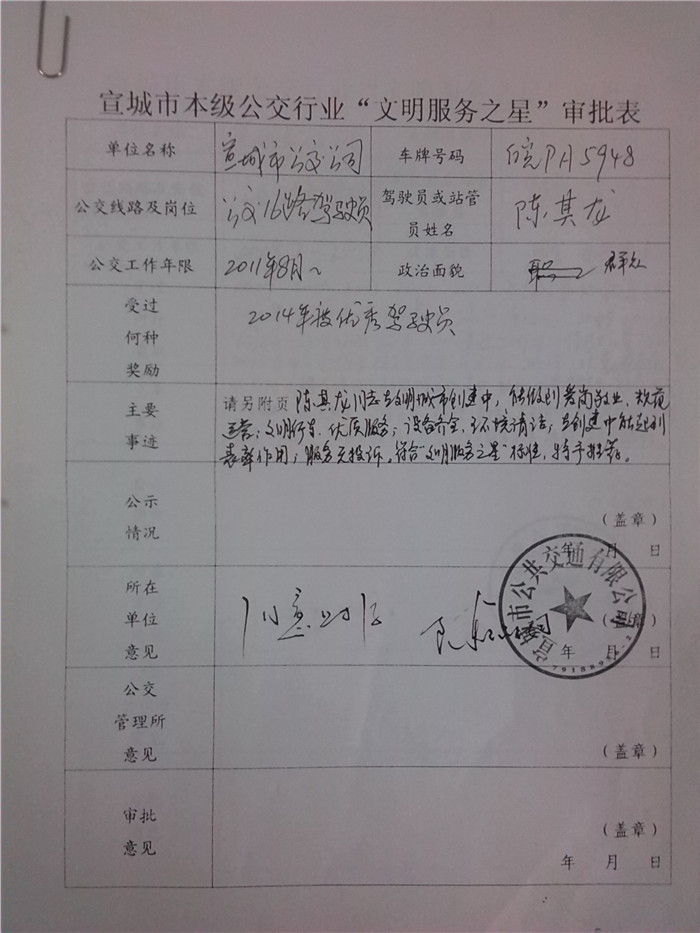 宣城市本级公交行业“文明服务之星”审批表
单位名称 宣城市公交公司 车牌号码 皖PA5948
公交线路及岗位 公交16路驾驶员 驾驶员或站管员姓名 陈其龙
公交工作年限 2011年8月~ 政治面貌 群众
受过何种奖励 2014年被优秀驾驶员
主要事迹 请另附页 陈其龙同志在文明城市创建中,能做到爱岗敬业、规范
运营;文明行车、优质服务;设备齐全、环境清洁;在创建中能起到
表率作用;服务无投诉。符合“文明服务之星”标准,特予推荐。
公示情况 (盖章)
年 月 日
所在单位意见 同意
年 月 日
宣城市公共交通有限公司
公交管理所意见 (盖章)
审批意见 (盖章)
年 月 日